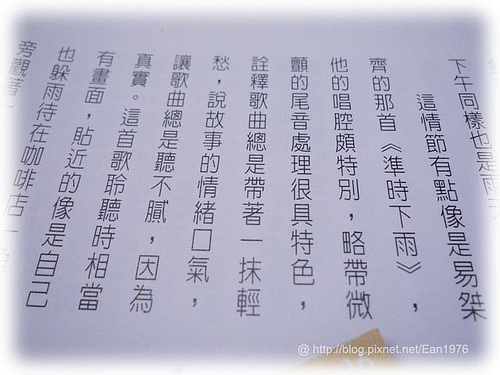 下午同樣也是雨
這情節有點像是易桀
齊的那首《準時下雨》，
他的唱腔頗特別，略帶微
顫的尾音處理很具特色，
詮釋歌曲總是帶著一抹輕
愁，說故事的情緒□氣，
讓歌曲總是聽不膩，因為
真實。這首歌聆聽時相當
有畫面，貼近的像是自己
也躲雨待在咖啡店一
旁觀著
@ http://blog.pixnet.net/Ean1976